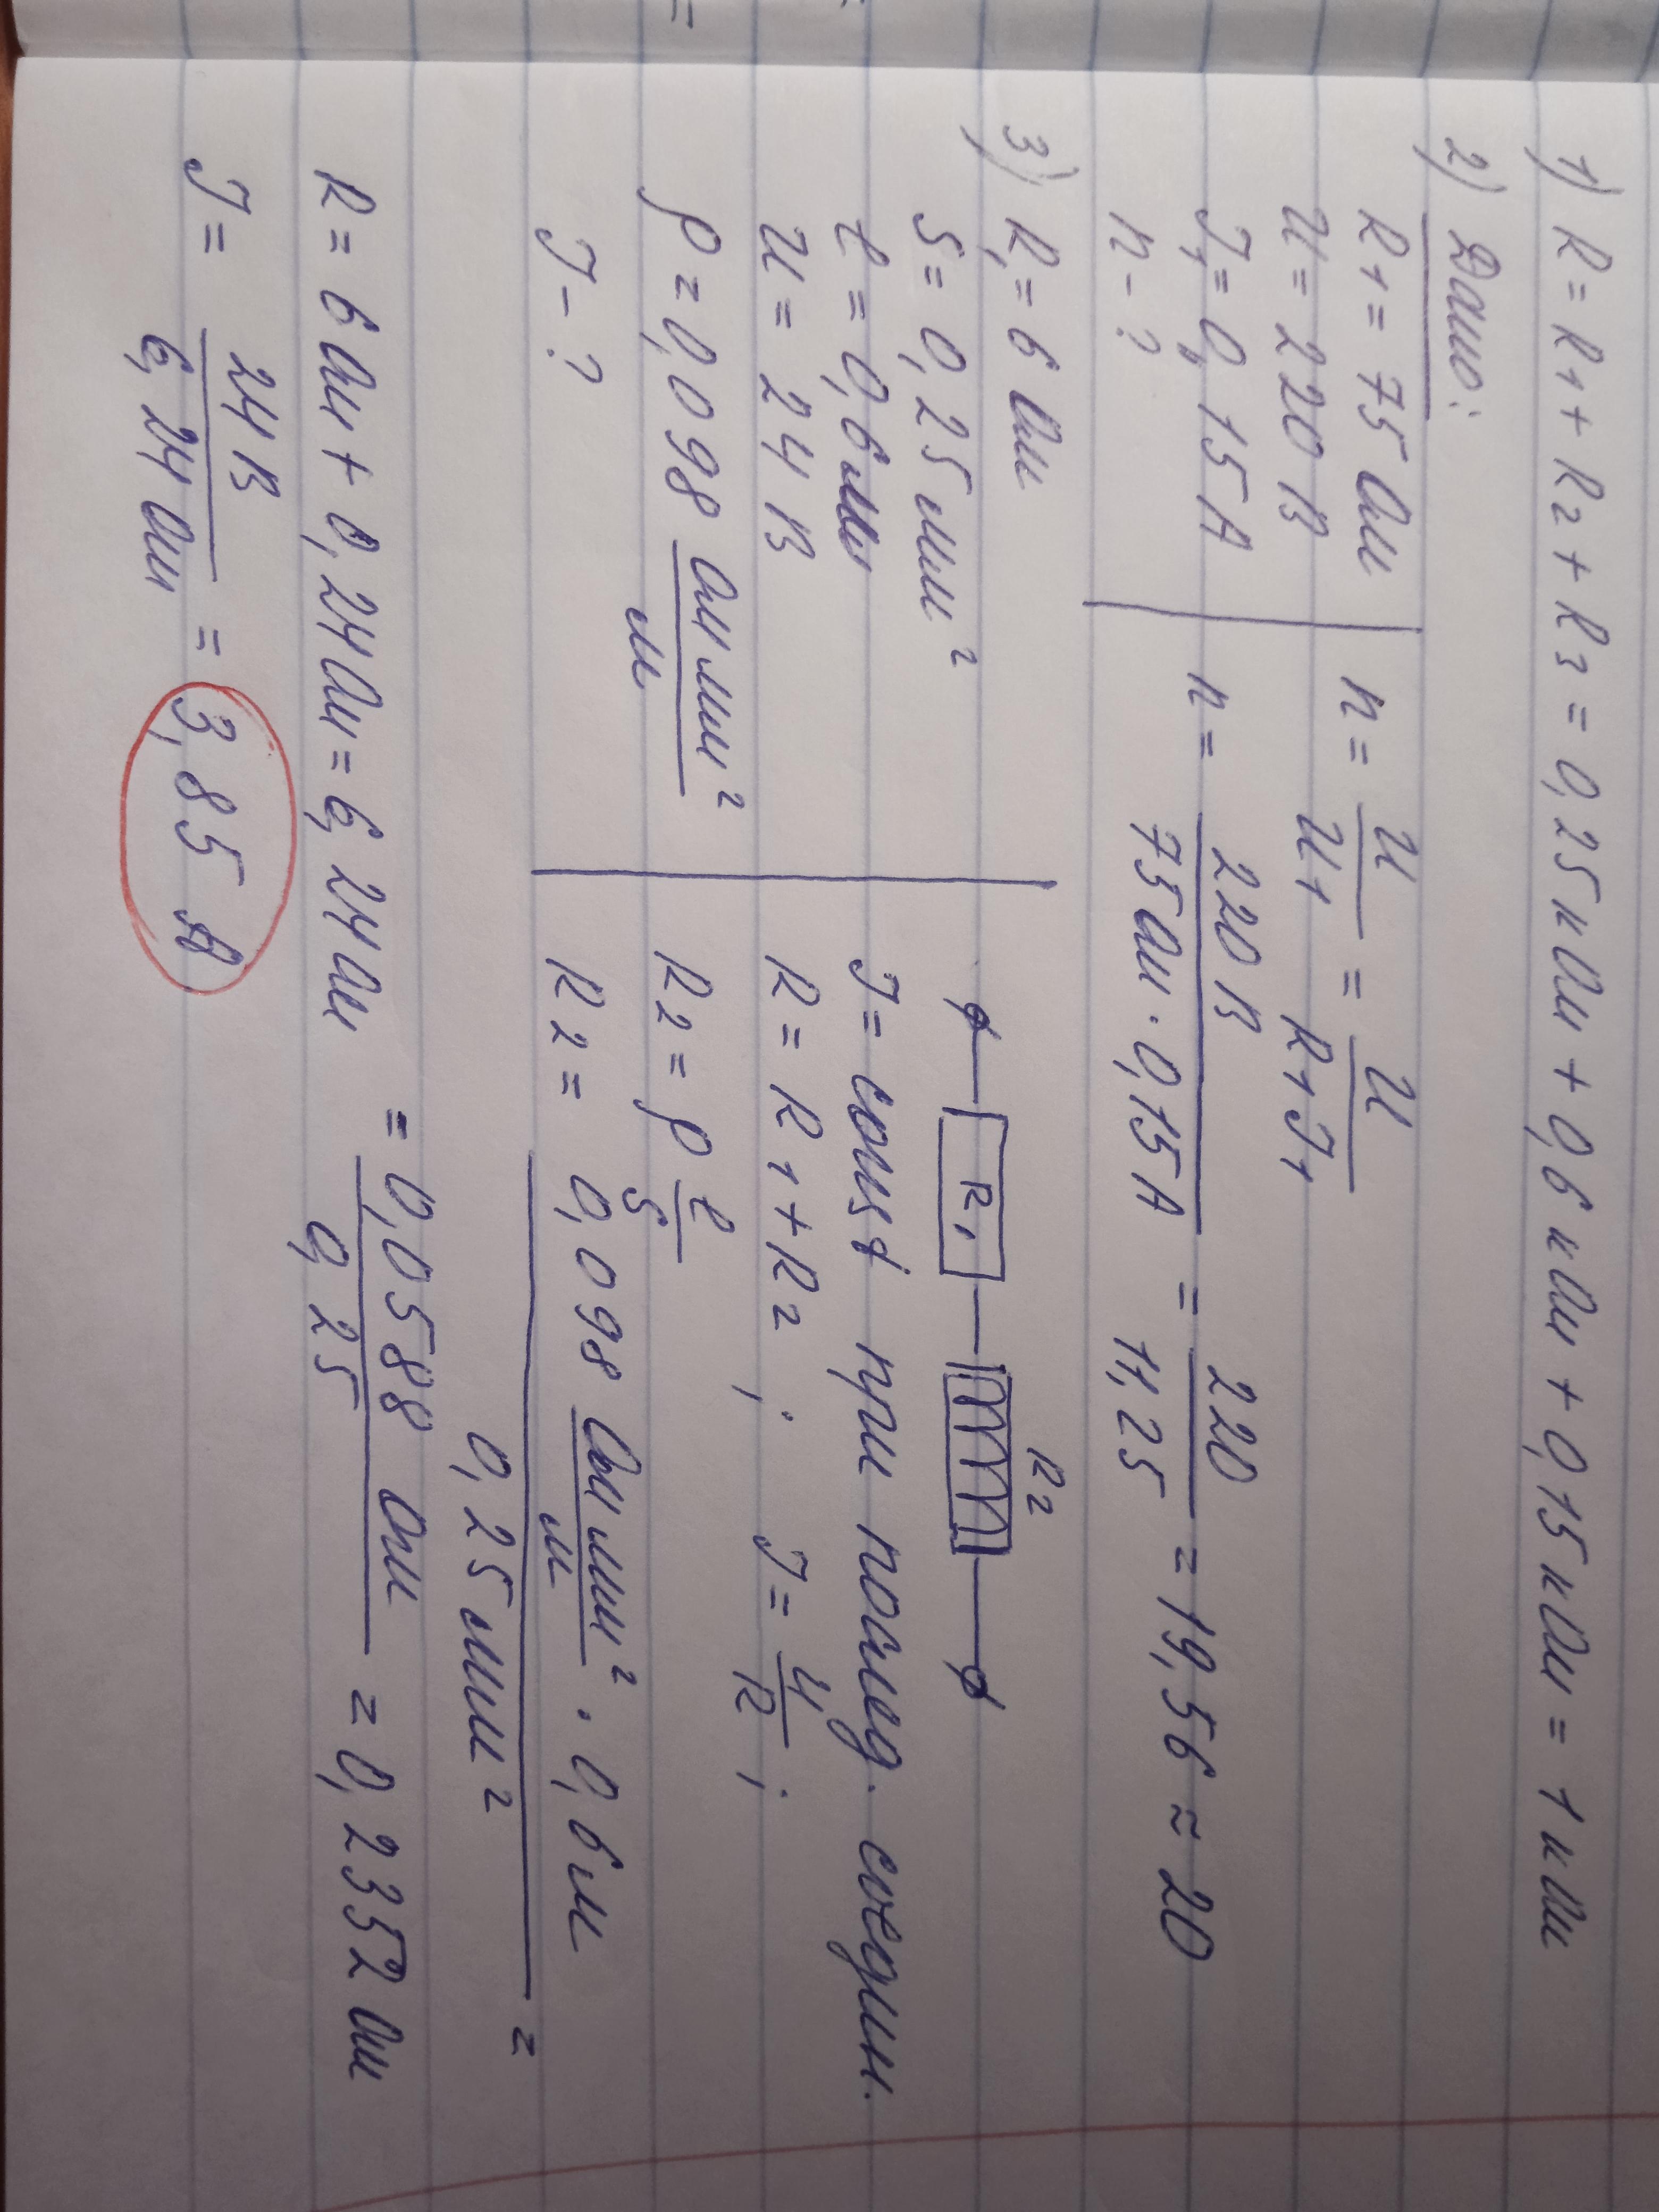 1) R = R1 + R2 + R3 = 0,25 кОм + 0,6 кОм + 0,15 кОм = 1 кОм
2) Дано:
R1 = 75 Ом
U = 220 В
I1 = 0,15 А
n - ?
n = U/U1 = U/R1I1
n = 220 В/75 Ом · 0,15 А = 220/11,25 = 19,56 ≈ 20
3) R1 = 6 Ом
S = 0,25 мм²
ℓ = 0,6 м
U = 24 В
ρ = 0,098 Ом мм²/м
I - ?
R1 R2
I = const при послед. соедин.
R = R1 + R2 ; I = U/R ;
R2 = ρ ℓ/S
R2 = 0,098 Ом мм²/м · 0,6 м / 0,25 мм² =
= 0,0588 Ом/0,25 = 0,2352 Ом
R = 6 Ом + 0,24 Ом = 6,24 Ом
I = 24 В/6,24 Ом = 3,85 А